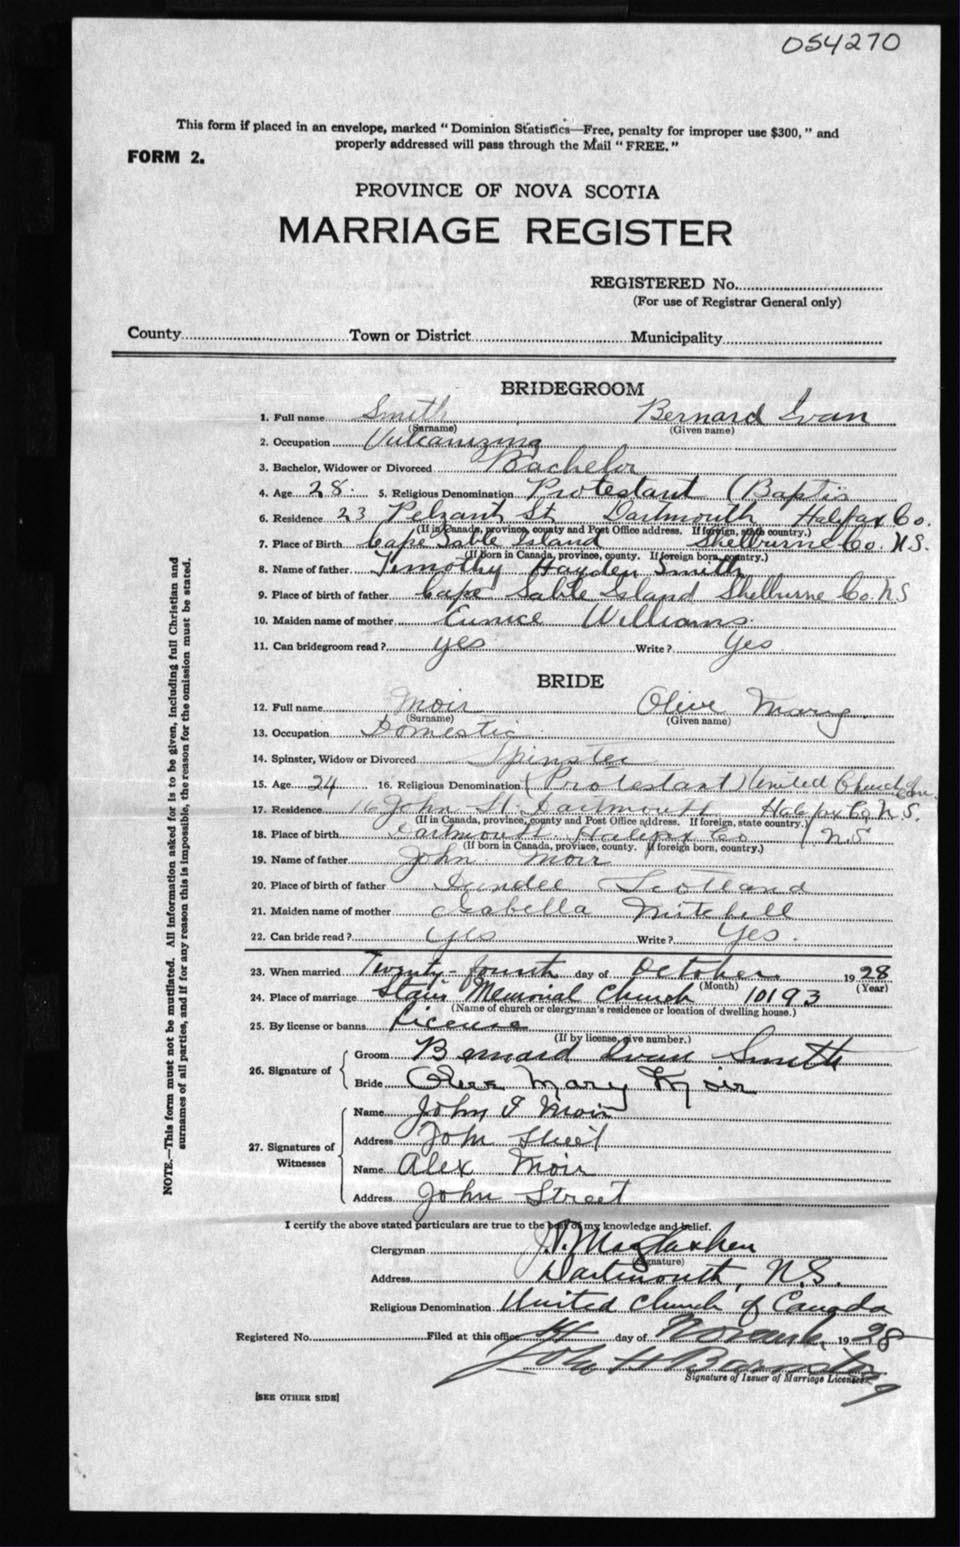 054270
This form if placed in an envelope, marked "Dominion Statistics—Free, penalty for improper use $300," and
properly addressed will pass through the Mail "FREE."
FORM 2.
PROVINCE OF NOVA SCOTIA
MARRIAGE REGISTER
REGISTERED No.
(For use of Registrar General only)
County Town or District Municipality
BRIDEGROOM
1. Full name Smith Bernard Ivan
(Surname) (Given name)
2. Occupation Vulcanizing
3. Bachelor, Widower or Divorced Bachelor
4. Age 28 5. Religious Denomination Protestant (Baptis
6. Residence 23 Pelzant St. Dartmouth Halifax Co.
(If in Canada, province, county and Post Office address. If foreign, state country.)
7. Place of Birth Cape Sable Island Shelburne Co. N.S.
(If born in Canada, province, county. If foreign born, country.)
8. Name of father Timothy Hayden Smith
9. Place of birth of father Cape Sable Island Shelburne Co. N.S
10. Maiden name of mother Eunice Williams.
11. Can bridegroom read? yes Write? Yes
BRIDE
12. Full name Moir Olive Mary.
(Surname) (Given name)
13. Occupation Domestic
14. Spinster, Widow or Divorced Spinster
15. Age 24 16. Religious Denomination (Protestant) United Church Can.
17. Residence 16 John St. Dartmouth Halifax Co. N.S.
(If in Canada, province, county and Post Office address. If foreign, state country.)
18. Place of birth Dartmouth Halifax Co N.S
(If born in Canada, province, county. If foreign born, country.)
19. Name of father John Moir
20. Place of birth of father Dundee Scotland
21. Maiden name of mother Isabella Mitchell
22. Can bride read? Yes Write? Yes.
23. When married Twenty-fourth day of October 1928
(Month) (Year)
24. Place of marriage Stairs Memorial Church 10193
(Name of church or clergyman's residence or location of dwelling house.)
25. By license or banns License
(If by license, give number.)
26. Signature of Groom Bernard Ivan Smith
Bride Olive Mary Moir
27. Signatures of Witnesses
Name John I Moir
Address John Street
Name Alex Moir
Address John Street
I certify the above stated particulars are true to the best of my knowledge and belief.
Clergyman
(Signature)
Address Dartmouth, N.S.
Religious Denomination United Church of Canada
Registered No. Filed at this office day of 1928
John H
Signature of Issuer of Marriage Licenses
[SEE OTHER SIDE]
NOTE.—This form must not be mutilated. All information asked for is to be given, including full Christian and
surnames of all parties, and if for any reason this is impossible, the reason for the omission must be stated.